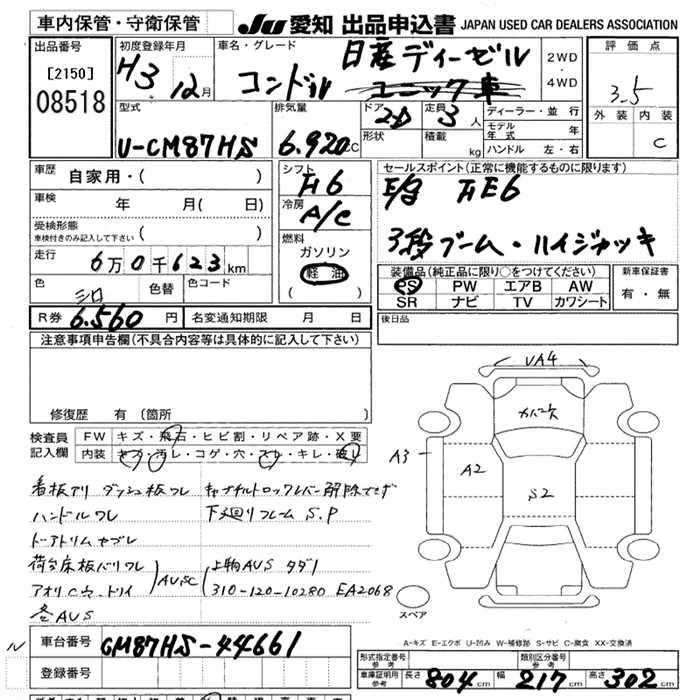 車内保管・守衛保管
JU 愛知 出品申込書 JAPAN USED CAR DEALERS ASSOCIATION
出品番号
[2150]
08518
初度登録年月
H3 12月
車名・グレード
日産ディーゼル
コンドル ユニック車
2WD
・
4WD
評価点
3.5
外装 内装
C
型式
U-CM87HS
排気量
6.920CC
ドア
2D
形状
定員
3人
積載
kg
ディーラー・並行
モデル年式 年
ハンドル 左・右
車歴 自家用・( )
車検 年 月( 日)
受検形態
車検付きのみ記入して下さい ( )
走行 6万0千623km
色 シロ 色替 色コード
R券 6.560円 名変通知期限 月 日
シフト
F6
冷房
A/C
燃料
ガソリン
軽油
( )
セールスポイント(正常に機能するものに限ります)
F6
3段ブーム・ハイジャッキ
装備品(純正品に限り○をつけてください)
PS PW エアB AW
SR ナビ TV カワシート
新車保証書
有・無
後日品
注意事項申告欄(不具合内容等は具体的に記入して下さい)
修復歴 有 (箇所 )
検査員記入欄
FW キズ・飛石・ヒビ割・リペア跡・X要
内装 キズ・汚レ・コゲ・穴・スレ・キレ・破レ
看板アリ ダッシュ板ワレ キャブチルトロックレバー解除できず
ハンドルワレ 下廻りフレームS.P
ドアトリムヤブレ
荷台床板バリワレ AUSC 上物AUS タダノ
アオリ 310-120-10280 EA2068
各AUS
VA4
A3
A2
S2
スペア
A-キズ E-エクボ U-凹み W-補修跡 S-サビ C-腐食 XX-交換済
車台番号 CM87HS-44661
登録番号
形式指定番号 参考
類別区分番号 参考
車庫証明用 参考 長さ 804cm 幅 217cm 高さ 302cm